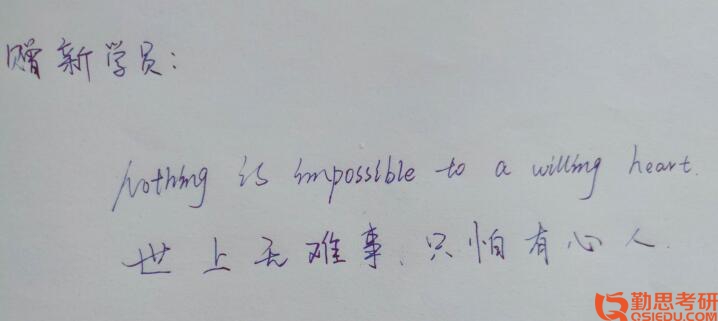 赠新学员：
Nothing is impossible to a willing heart.
世上无难事、只怕有心人.
勤思考研
QSIEDU.COM